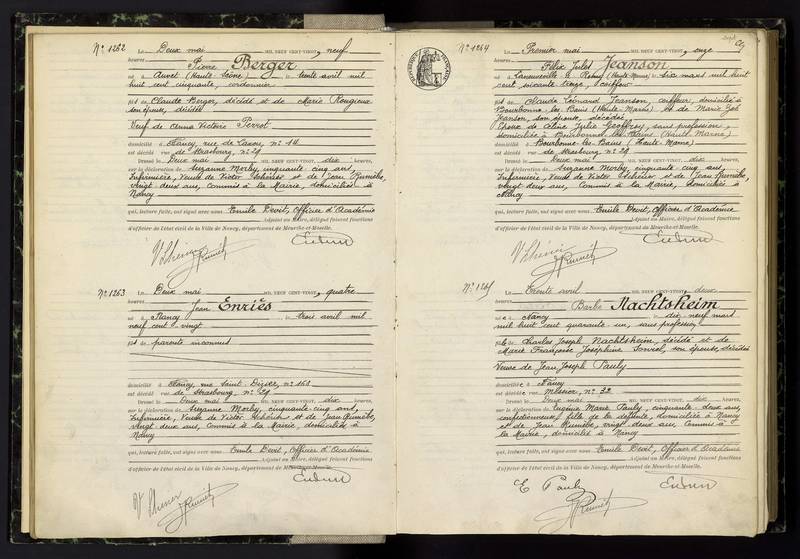 N° 1262 Le Deux mai MIL NEUF CENT-VINGT, neuf
heures
Pierre Berger
né à Auvet (Haute Saône) le trente avril mil
huit cent cinquante, cordonnier
fils de Claude Berger, décédé et de Marie Rougieux
son épouse, décédée
Veuf de Anna Victoire Perrot
domicilié à Nancy, rue de Laxou, n° 14
est décédé rue de Strasbourg, n° 29
Dressé le Deux mai MIL NEUF CENT-VINGT, dix heures,
sur la déclaration de Suzanne Morby, cinquante-cinq ans,
Infirmière, Veuve de Victor et de Jean Rumièhe,
vingt deux ans, Commis à la Mairie, domiciliés à
Nancy
qui, lecture faite, ont signé avec nous Emile Devit, Officier d'Académie
Adjoint au Maire, délégué faisant fonctions
d'officier de l'état civil de la Ville de Nancy, département de Meurthe-et-Moselle.
N° 1263 Le Deux mai MIL NEUF CENT-VINGT, quatre
heures
Jean Enriès
né à Nancy le trois avril mil
neuf cent vingt
fils de parents inconnus
domicilié à Nancy, rue Saint Dizier, n° 163
est décédé rue de Strasbourg, n° 29
Dressé le Deux mai MIL NEUF CENT-VINGT, dix heures,
sur la déclaration de Suzanne Morby, cinquante-cinq ans,
Infirmière, Veuve de Victor et de Jean Rumièhe,
vingt deux ans, Commis à la Mairie, domiciliés à
Nancy
qui, lecture faite, ont signé avec nous Emile Devit, Officier d'Académie
Adjoint au Maire, délégué faisant fonctions
d'officier de l'état civil de la Ville de Nancy, département de Meurthe-et-Moselle.
N° 1264 Le Premier mai MIL NEUF CENT-VINGT, onze
heures
Félix Jules Jeanson
né à Laneuvelle (Haute Marne) le six mars mil huit
cent soixante treize, coiffeur
fils de Claude Léonard Jeanson, coiffeur, domicilié à
Bourbonne-les-Bains (Haute Marne) et de Marie
Jeanson, son épouse, décédée
Epoux de Céline Julie Geoffroy, sans profession,
domiciliée à Bourbonne-les-Bains (Haute Marne)
domicilié à Bourbonne-les-Bains (Haute Marne)
est décédé rue de Strasbourg, n° 29
Dressé le Deux mai MIL NEUF CENT-VINGT, dix heures,
sur la déclaration de Suzanne Morby, cinquante-cinq ans,
Infirmière, Veuve de Victor et de Jean Rumièhe,
vingt deux ans, Commis à la Mairie, domiciliés à
Nancy
qui, lecture faite, ont signé avec nous Emile Devit, Officier d'Académie
Adjoint au Maire, délégué faisant fonctions
d'officier de l'état civil de la Ville de Nancy, département de Meurthe-et-Moselle.
N° 1265 Le Trente avril MIL NEUF CENT-VINGT, deux
heures
Barbe Nachtsheim
née à Nancy le dix neuf mars
mil huit cent quarante un, sans profession
fille de Charles Joseph Nachtsheim, décédé et de
Marie Françoise Joséphine, son épouse, décédée
Veuve de Jean Joseph Pauly
domiciliée à Nancy
est décédée rue Messier, n° 32
Dressé le Deux mai MIL NEUF CENT-VINGT, dix heures,
sur la déclaration de Eugénie Marie Pauly, cinquante-deux ans,
fille de la défunte, domiciliée à Nancy
et de Jean Rumièhe, vingt deux ans, Commis à
la Mairie, domicilié à Nancy
qui, lecture faite, ont signé avec nous Emile Devit, Officier d'Académie
Adjoint au Maire, délégué faisant fonctions
d'officier de l'état civil de la Ville de Nancy, département de Meurthe-et-Moselle.
E Pauly